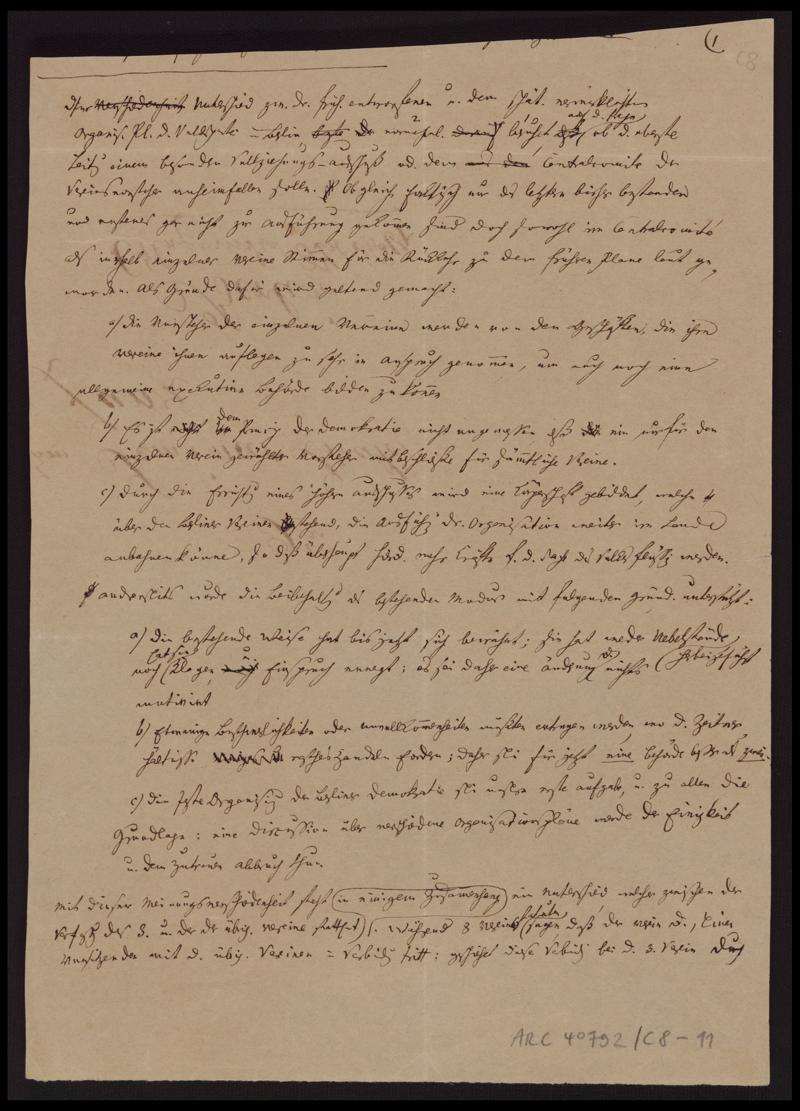 (1
C8
Der Unterschied zw. dr. früh. entworfenen u. dem spät. verwirklichten
Organis. Pl. d. Volksp. Berlin beruht ob d. oberste
Leitg einem besonderen Vollziehungs-Ausschuß od. dem Centralcomite der
Vereinsvorsteher anheimfallen solle. Obgleich factisch nur der letztere bisher bestanden
und ersteres gar nicht zur Ausführung gekommen sind doch sowohl im Centralcomité
als innerhalb einzelner Vereine Stimmen für die Rückkehr zu dem frühern Plane laut ge-
worden. Als Gründe dafür wird geltend gemacht:
a) die Vorsteher der einzelnen Vereine werden von den Geschäften, die ihre
Vereine ihnen auflegen zu sehr in Anspruch genommen, um auch noch eine
allgemeine exekutive Behörde bilden zu können
b) Es ist dem Princip der Demokratie nicht angemessen, daß ein nur für den
einzelnen Verein gewählter Vorsteher mitbeschließe für sämmtliche Vereine.
c) durch die Errichtg eines höhern Ausschusses wird eine Körperschaft gebildet, welche
über den Berliner Vereinen stehend, die Ausführg dr. Organisation weiter im Lande
anbahnen könne, so daß überhaupt mehr Kräfte f. d. Sache des Volks flüssig werden.
Anderseits wurde die Beibehaltg des bestehenden Modus mit folgenden Gründ. unterstützt:
a) die bestehende Weise hat bis jetzt sich bewährt; sie hat weder Uebelstände
noch Klagen Einspruch erregt: es sei daher eine Ändrung nichts (herbeigeführt
motivirt
b) Etwanige Beschwerlichkeiten oder Unvollkommenheiten müßten ertragen werden wo d. Zeitver-
hältnisse rasches Handeln fordern; daher sei für jetzt eine Behörde besser als zwei.
c) die feste Organisirg der Berliner Demokratie sei unsere erste Aufgabe, u. zu allem die
Grundlage: eine Discussion über verschiedene Organisationspläne werde der Einigkeit
u. dem Zutrauen Abbruch thun.
Mit dieser Meinungsverschiedenheit steht (in einigem Zusammenhang) ein Unterschied welcher zwischen der
Verfassg des 3. u. der der übrig. Vereine statthat). Während 3 Vereine daß der Verein d. seiner
Vorsitzenden mit d. übrig. Vereinen in Verbindg tritt: geschieht diese Verbindg bei d. 3. Verein durch
ARC 40792/C8-11